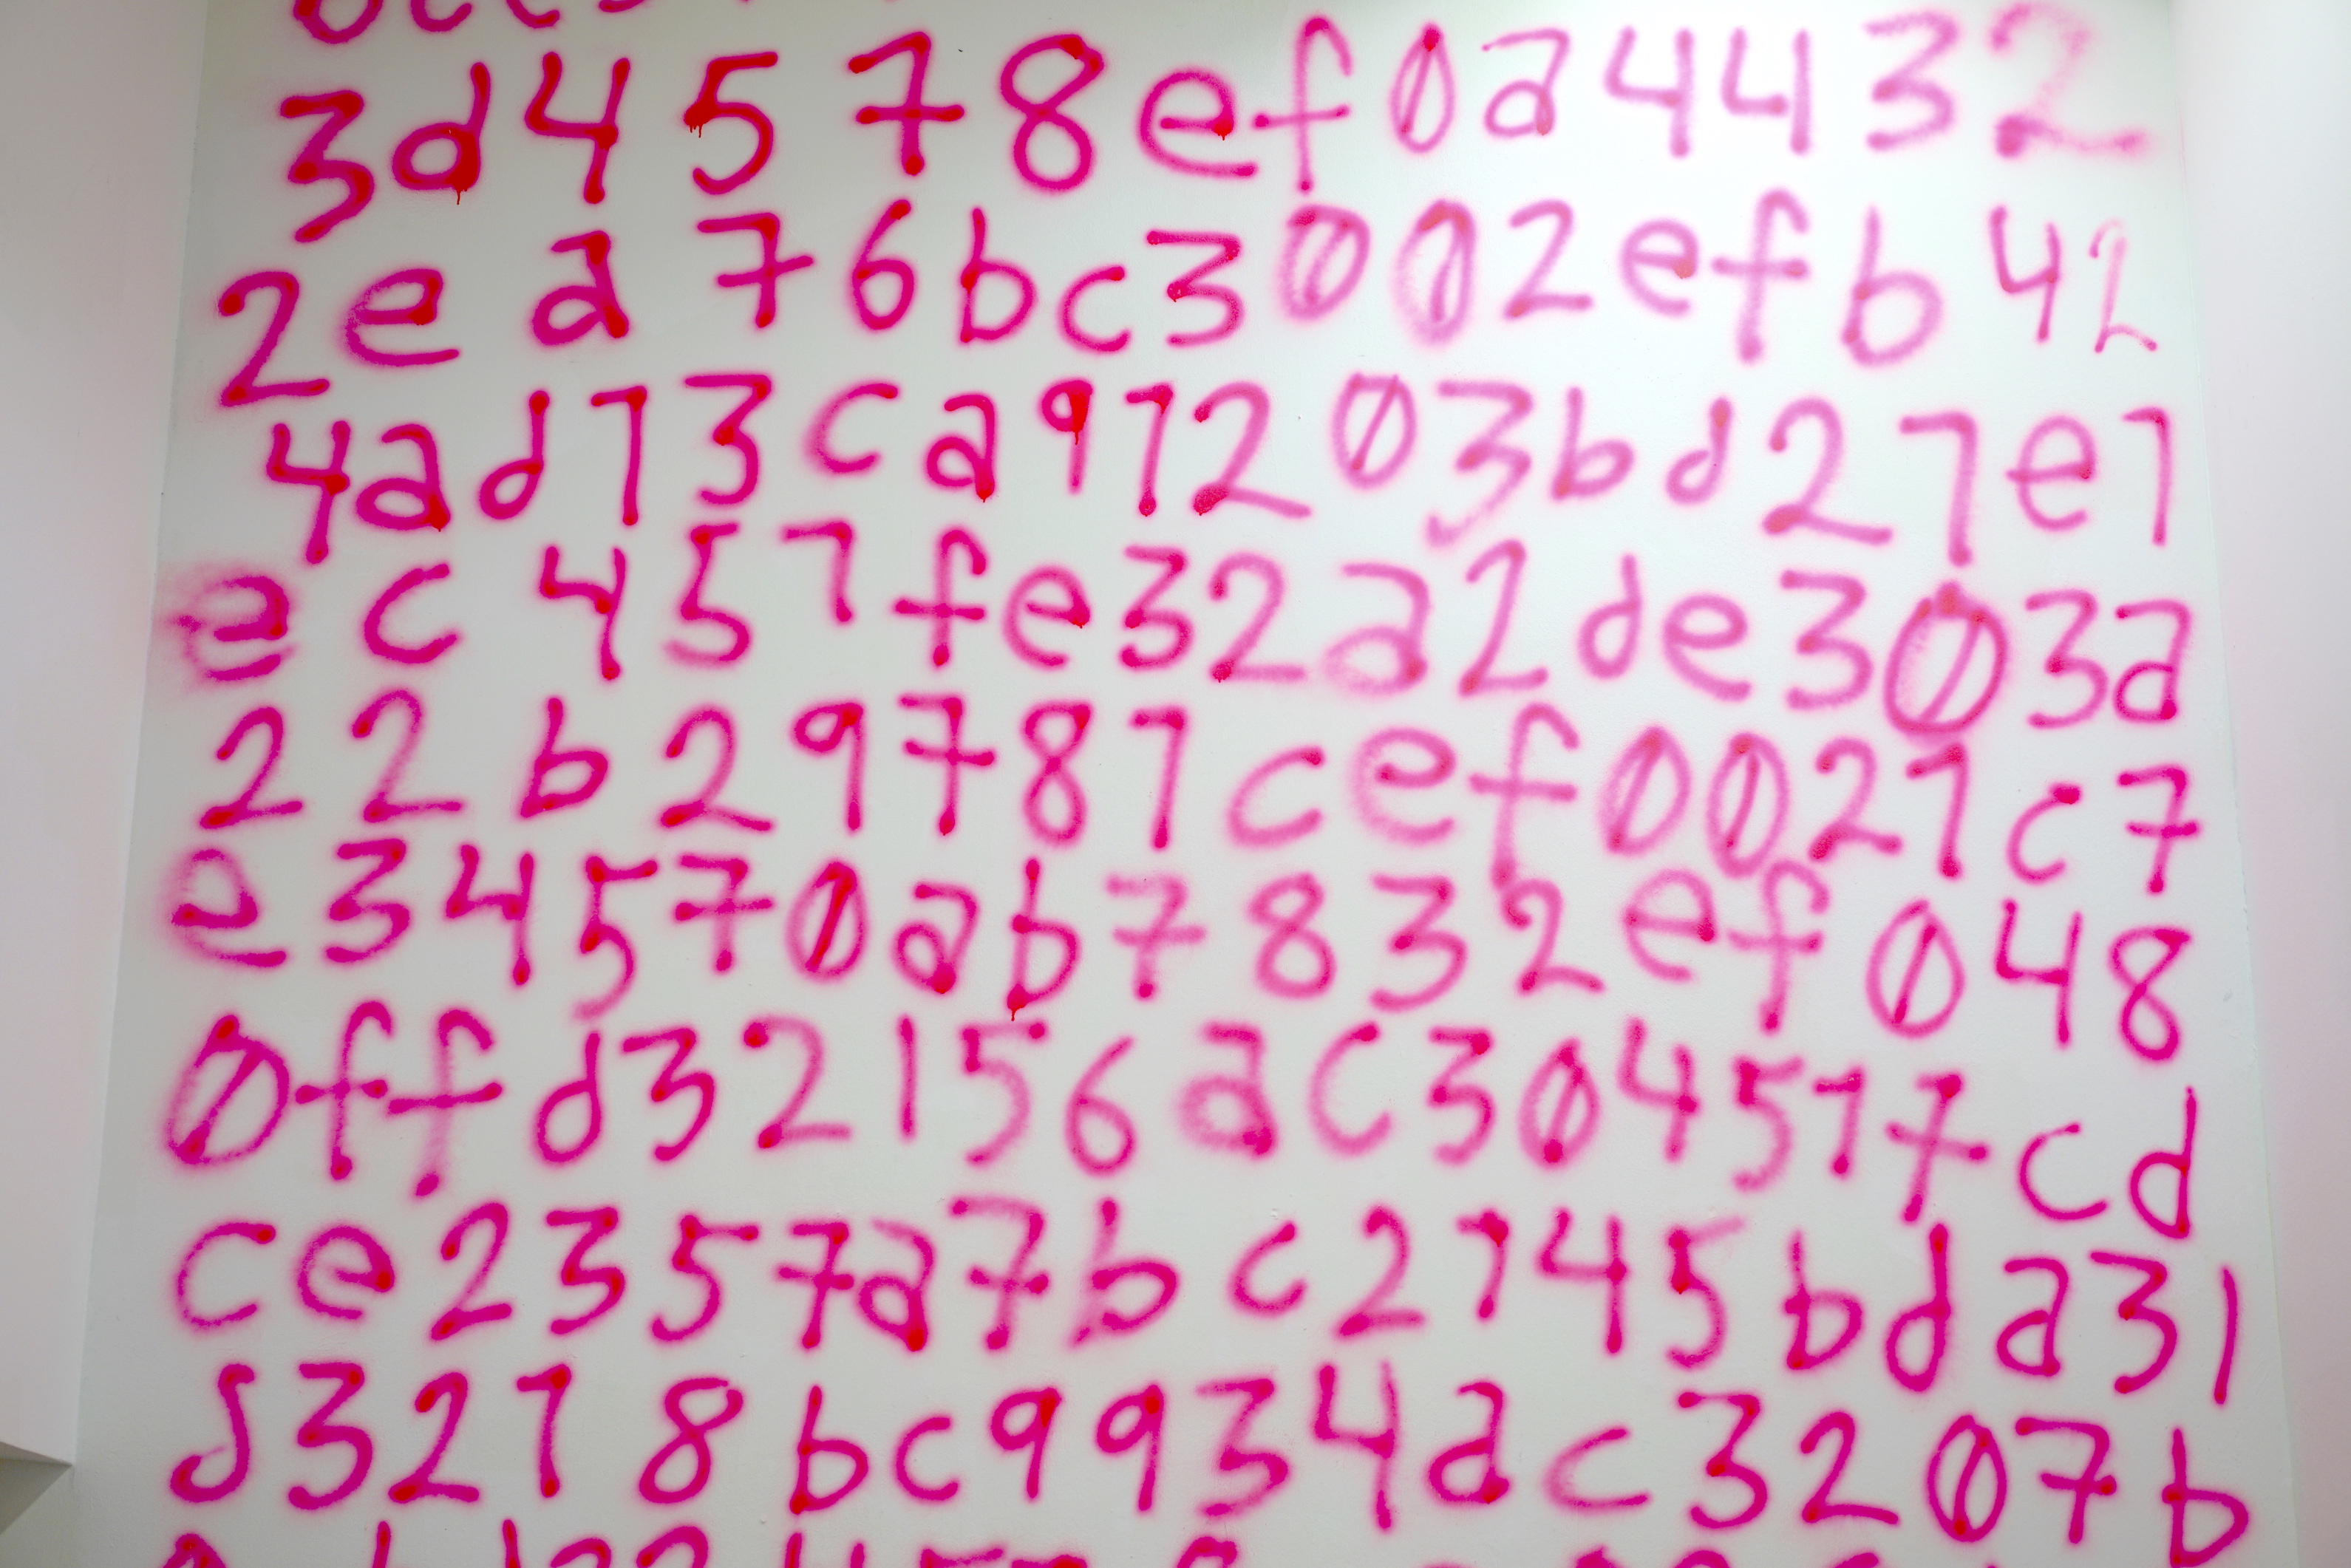 3d4578ef0a4432
2ea76bc3002efb42
4ad13ca91203bd21e1
ec451fe32a2de303a
22b29781cef0021c7
e34570ab7832ef048
0ffd32156ac304517cd
ce2357a7bc2145bda31
d3218bc9934dc3207b